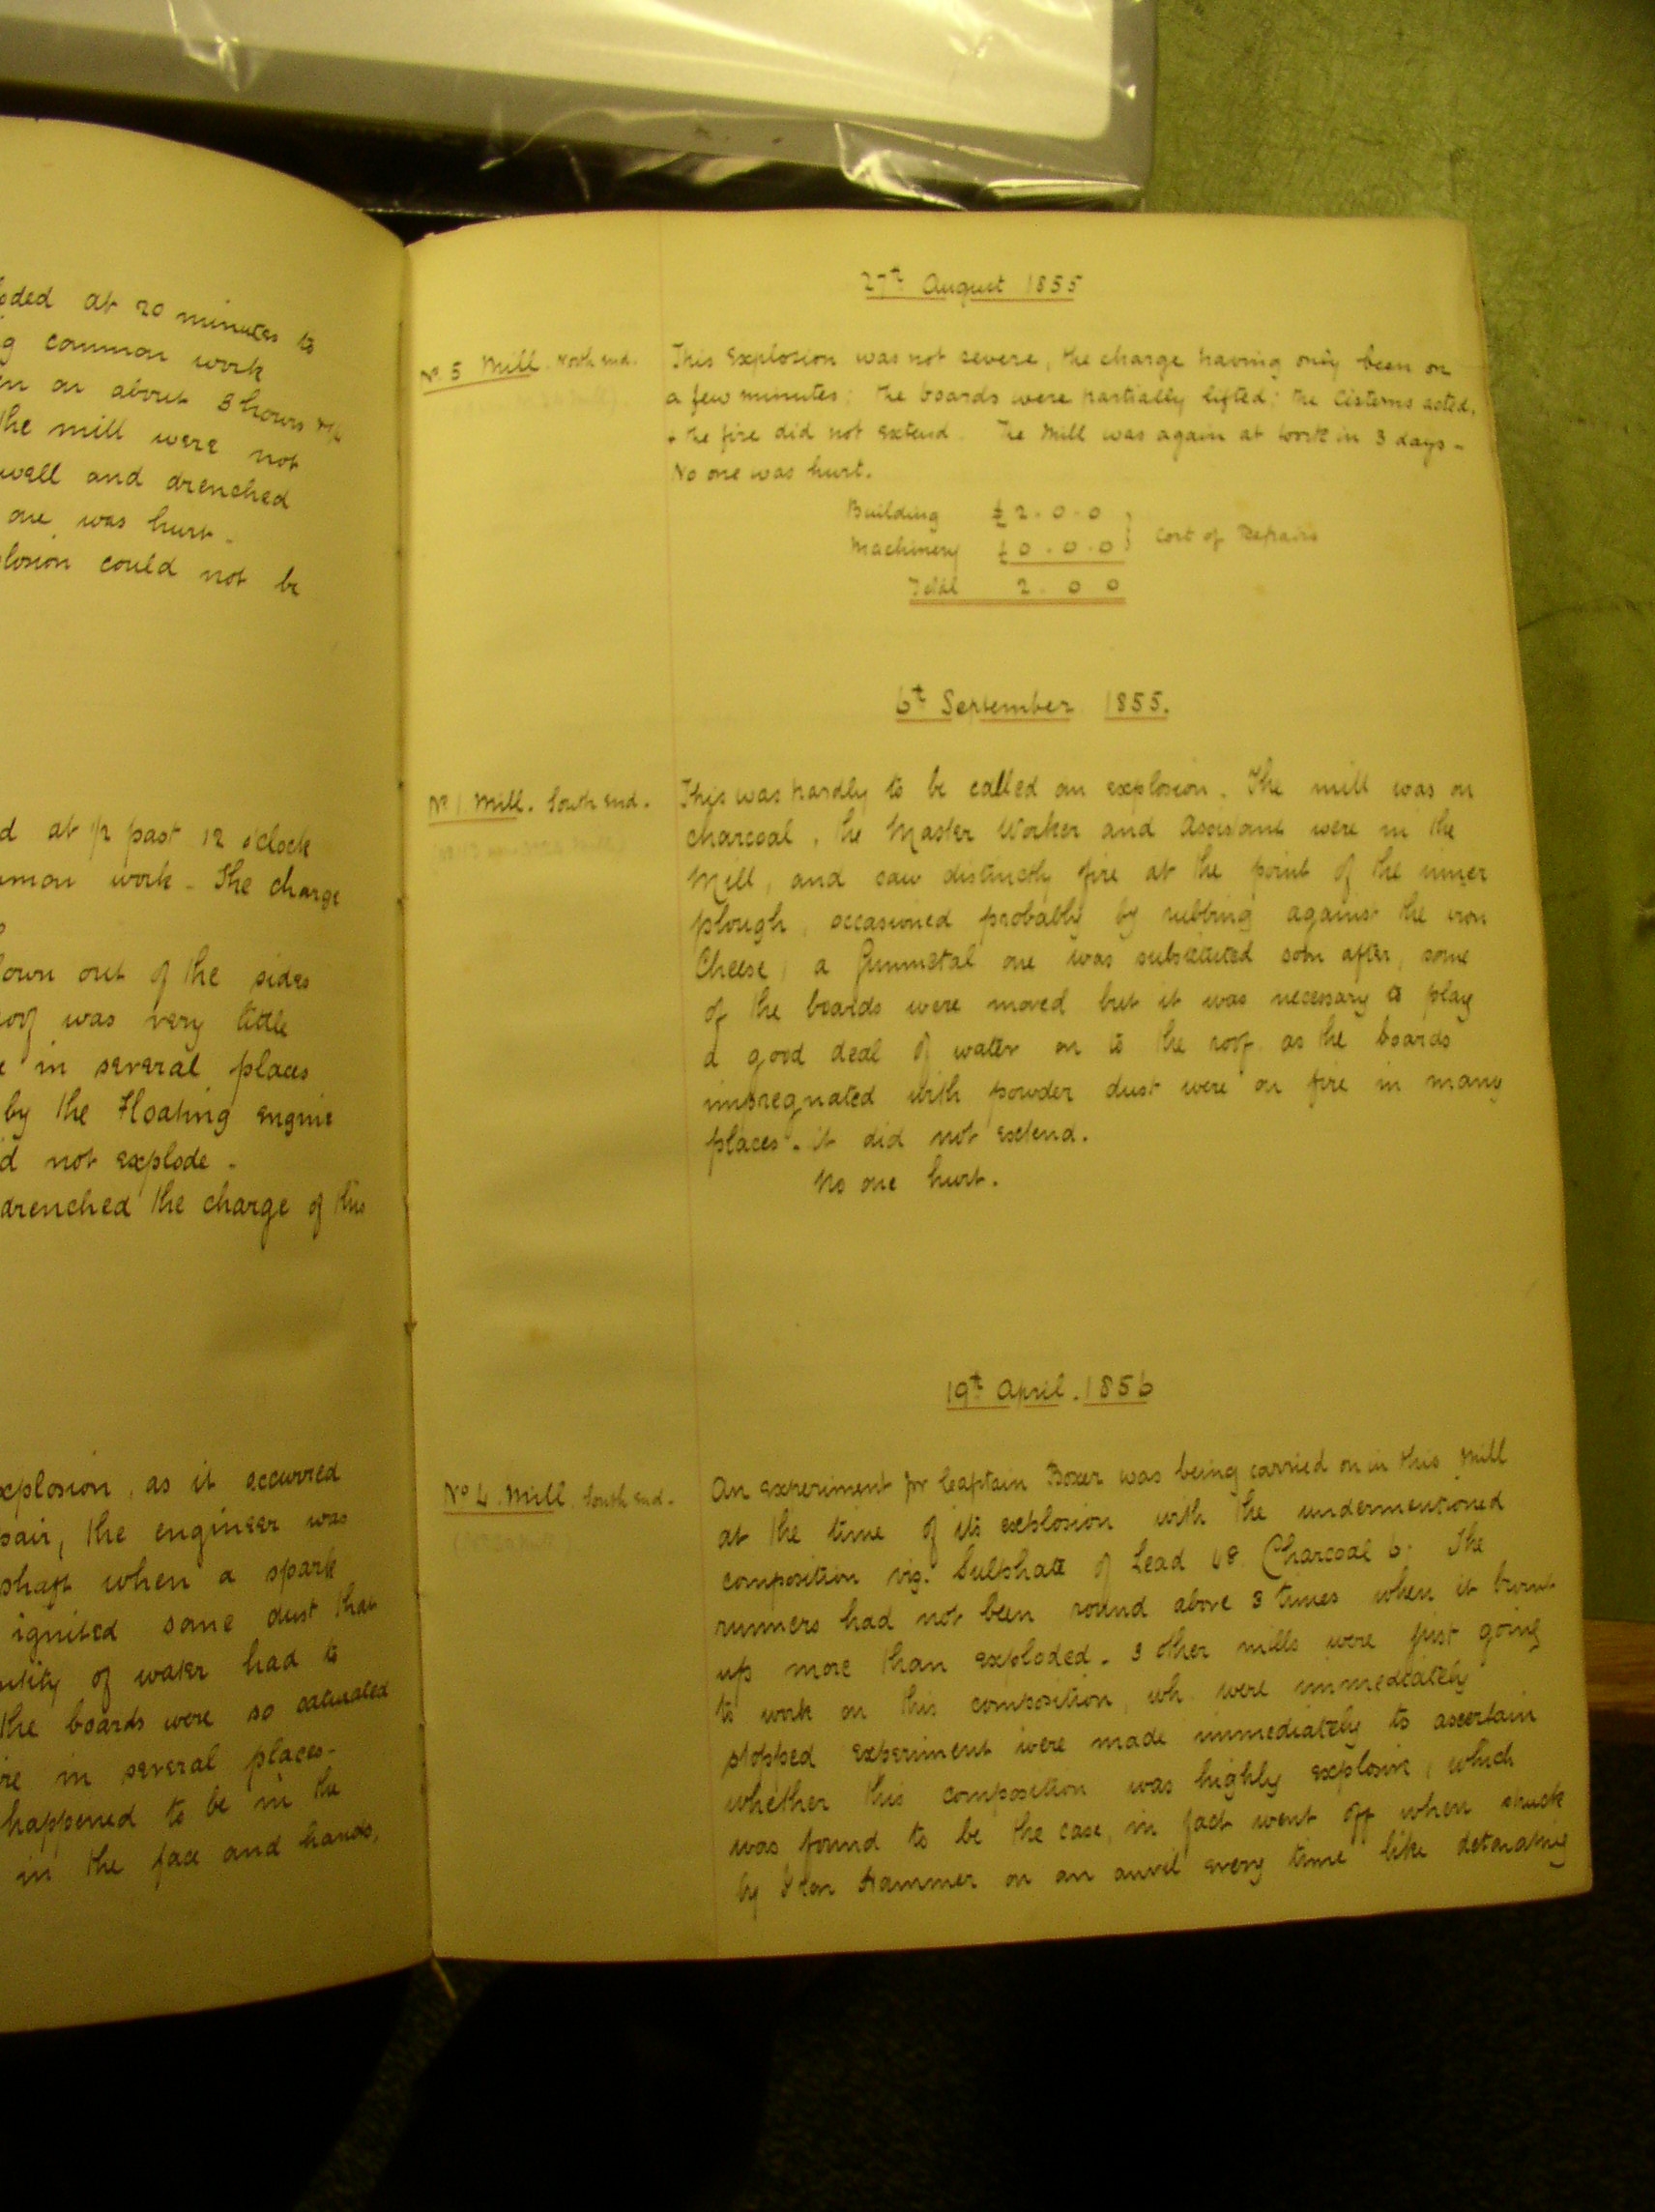 oded at 20 minutes to
g common work
en on about 3 hours
the mill were not
well and drenched
one was hurt.
plosion could not be
d at 1/2 past 12 o'clock
mmon work - The charge
lown out of the sides
oof was very little
e in several places
by the Floating engine
d not explode -
drenched the charge of this
xplosion, as it occurred
pair, the engineer was
shaft when a spark
ignited some dust that
ntity of water had to
the boards were so saturated
ire in several places -
happened to be in the
in the face and hands,
27th August 1855
No. 5 Mill. North end.
This Explosion was not severe, the charge having only been on
a few minutes; the boards were partially lifted; the Cisterns acted,
+ the fire did not extend. The Mill was again at work in 3 days -
No one was hurt.
Building £2.0.0
Machinery £0.0.0 } Cost of Repairs
Total 2.0 0
6th September 1855.
No 1. Mill. South end.
This was hardly to be called an explosion. The mill was on
charcoal, the Master Worker and Assistant were in the
Mill, and saw distinctly fire at the point of the inner
plough, occasioned probably by rubbing against the iron
Cheese, a Gunmetal one was substituted soon after, some
of the boards were moved but it was necessary to play
a good deal of water on to the roof as the boards
impregnated with powder dust were on fire in many
places - it did not extend.
No one hurt.
19th April. 1856
No 4. Mill. South end.
An experiment for Captain Boxer was being carried on in this Mill
at the time of its explosion with the undermentioned
composition viz. Sulphate of Lead Charcoal 6. The
runners had not been round above 3 times when it burnt
up more than exploded. 3 other mills were just going
to work on this composition, wh. were immediately
stopped experiment were made immediately to ascertain
whether this composition was highly explosive, which
was found to be the case, in fact went off when struck
by Iron Hammer on an anvil every time like detonating